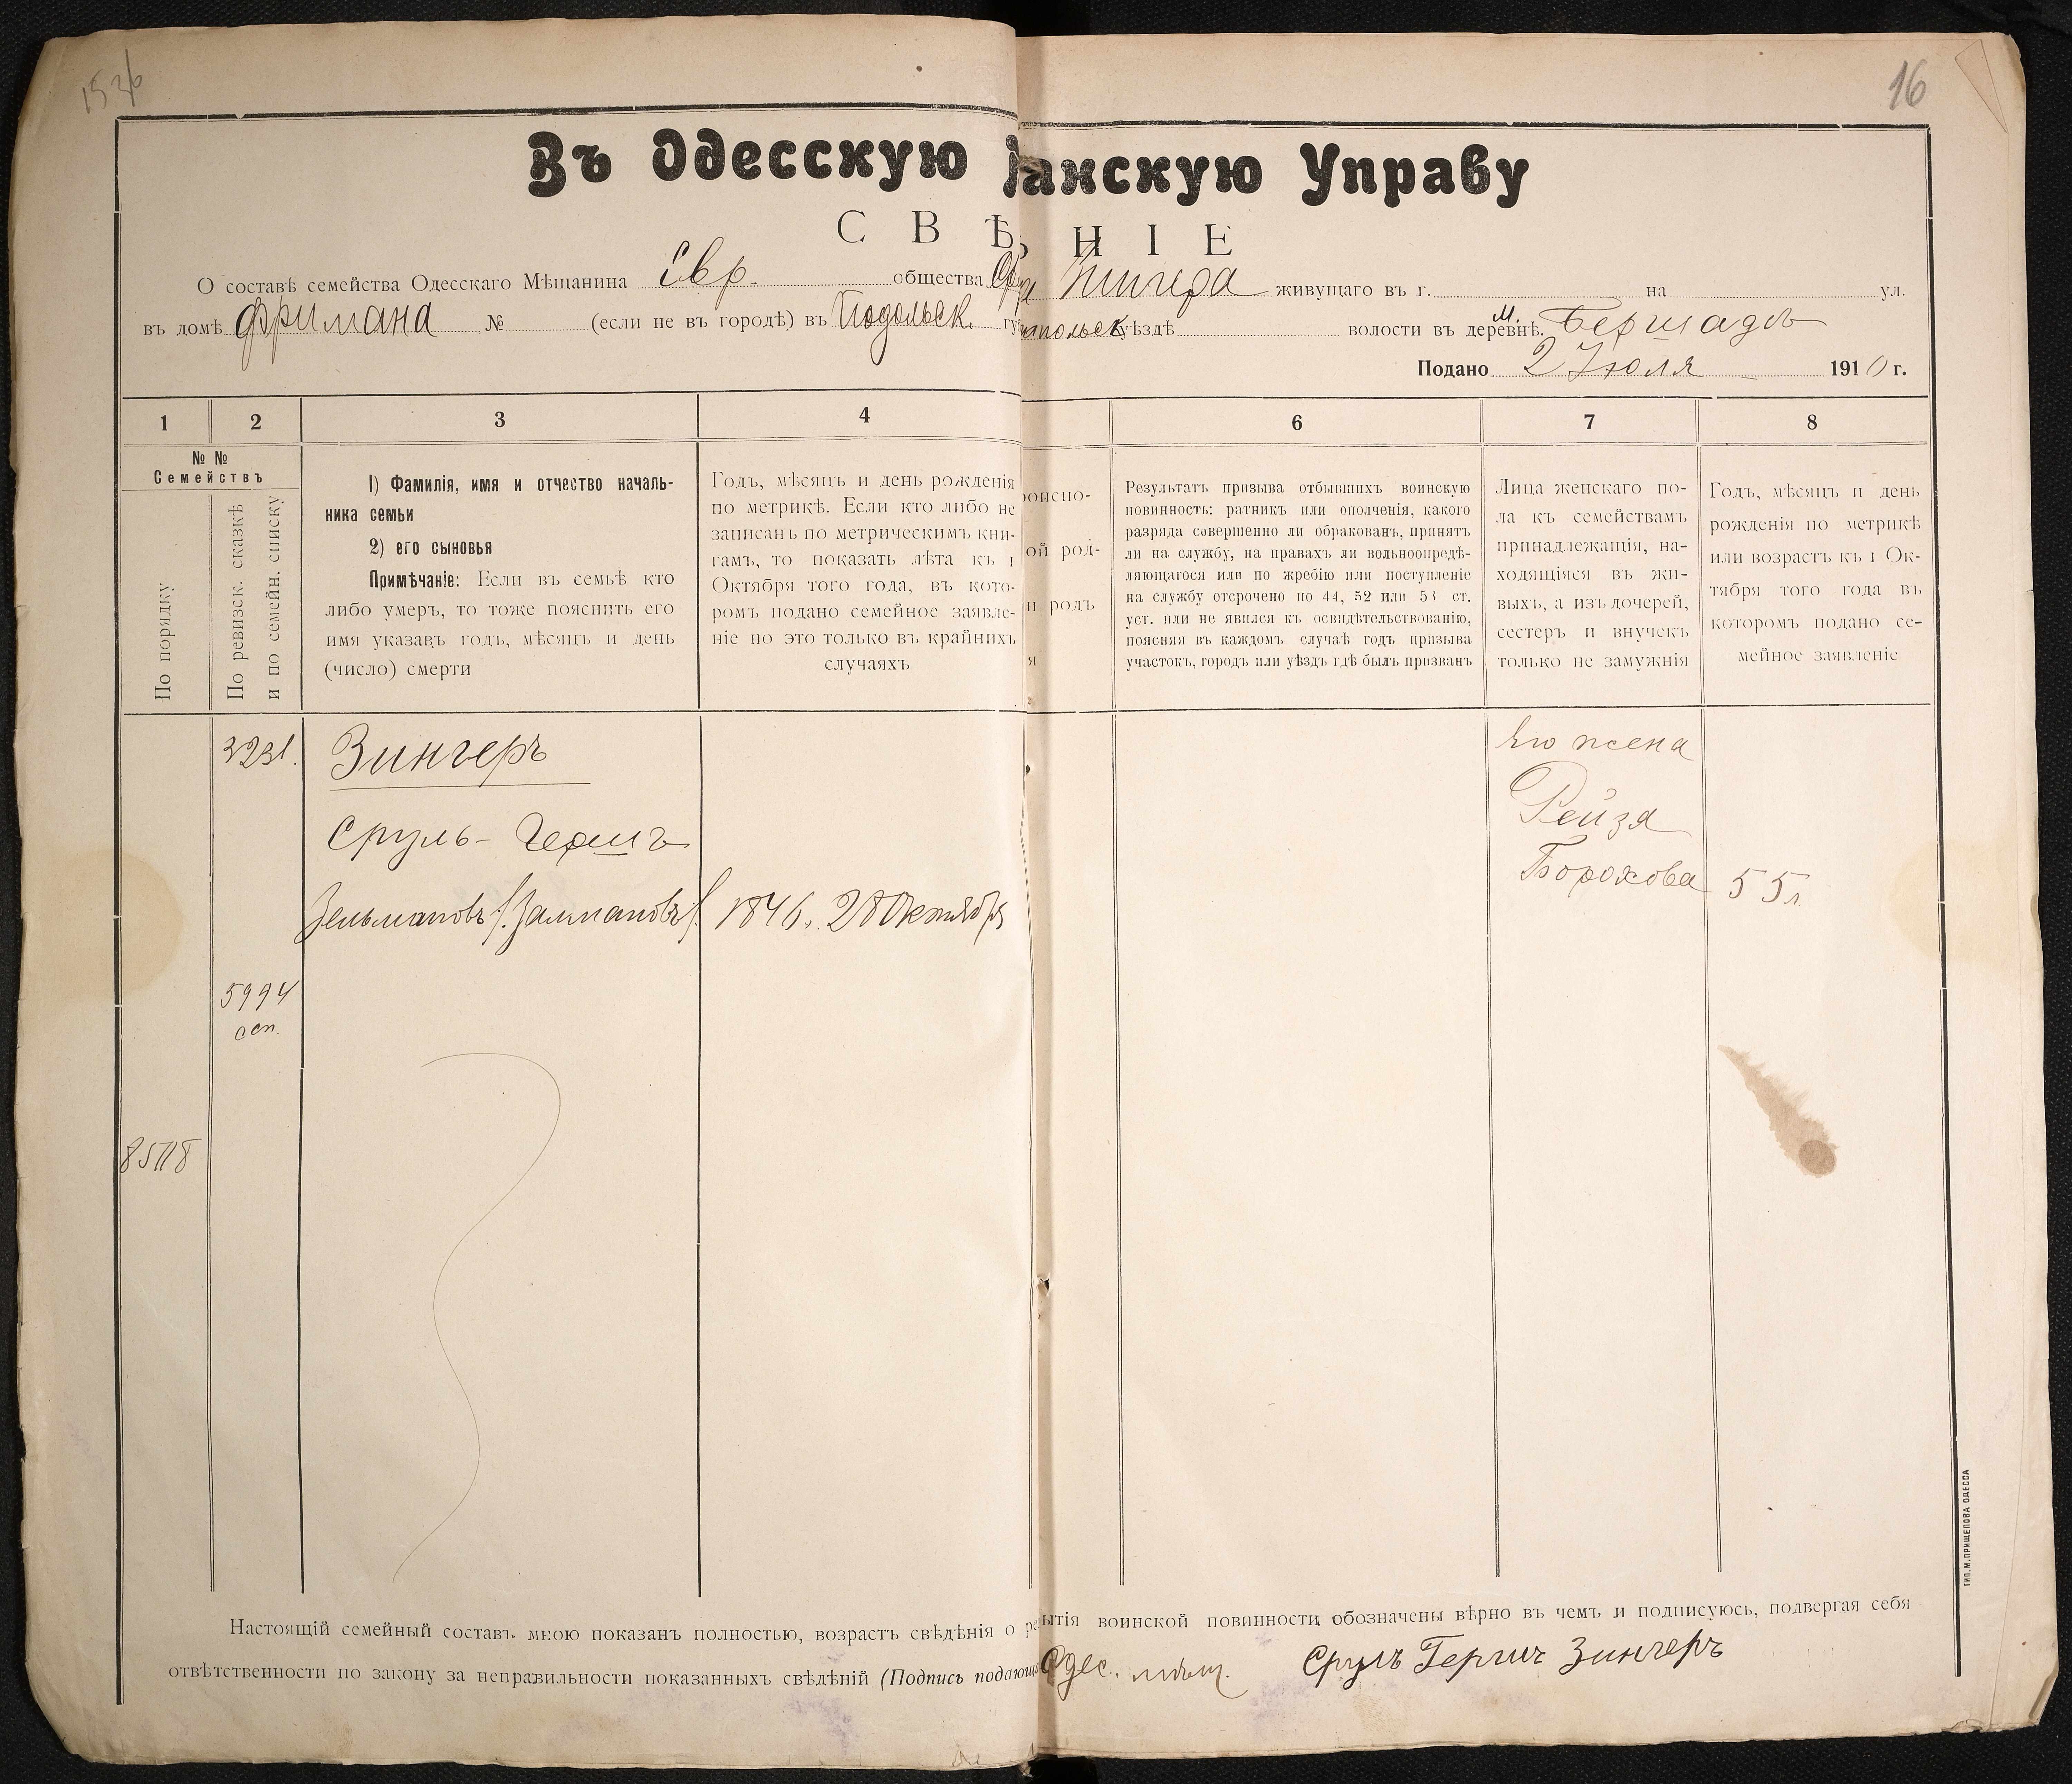 1536
16
Въ Одесскую
анскую Управу
С В Ѣ
Н І Е
О составѣ семейства Одесскаго Мѣщанина Евр. общества
живущаго въ г. на ул.
въ домѣ Фримана № (если не въ городѣ) въ Подольск.
уѣздѣ волости въ деревнѣ. м. Бершадь
Подано 2 Іюля 1910 г.
1 2 3 4 6 7 8
№ №
Семействъ
По порядку
По ревизск. сказкѣ
и по семейн. списку
1) Фамилія, имя и отчество началь-
ника семьи
2) его сыновья
Примѣчаніе: Если въ семьѣ кто
либо умеръ, то тоже пояснить его
имя указавъ годъ, мѣсяцъ и день
(число) смерти
Годъ, мѣсяцъ и день рожденія
по метрикѣ. Если кто либо не
записанъ по метрическимъ кни-
гамъ, то показать лѣта къ 1
Октября того года, въ кото-
ромъ подано семейное заявле-
ніе но это только въ крайнихъ
случаяхъ
оиспо-
ой род-
и родъ
я
Результатъ призыва отбывшихъ воинскую
повинность: ратникъ или ополченія, какого
разряда совершенно ли обракованъ, принятъ
ли на службу, на правахъ ли вольноопредѣ-
ляющагося или по жребію или поступленіе
на службу отсрочено по 44, 52 или 53 ст.
уст. или не явился къ освидѣтельствованію,
поясняя въ каждомъ случаѣ годъ призыва
участокъ, городъ или уѣздъ гдѣ былъ призванъ
Лица женскаго по-
ла къ семействамъ
принадлежащія, на-
ходящіяся въ жи-
выхъ, а изъ дочерей,
сестеръ и внучекъ
только не замужнія
Годъ, мѣсяцъ и день
рожденія по метрикѣ
или возрастъ къ 1 Ок-
тября того года въ
которомъ подано се-
мейное заявленіе
3231. Зингеръ
Сруль-Гершъ
Зельмановъ (Залмановъ) 1846. 28 Октября
Его жена
Рейзя
Борохова 55 л.
5994
осп.
85118
Настоящій семейный составъ мною показанъ полностью, возрастъ свѣдѣнія о
ытія воинской повинности обозначены вѣрно въ чемъ и подписуюсь, подвергая себя
отвѣтственности по закону за неправильности показанныхъ свѣдѣній (Подпись подающ
Одес. мѣщ. Сруль Гершъ Зингеръ
ТИП. М. ПРИЩЕПОВА ОДЕССА